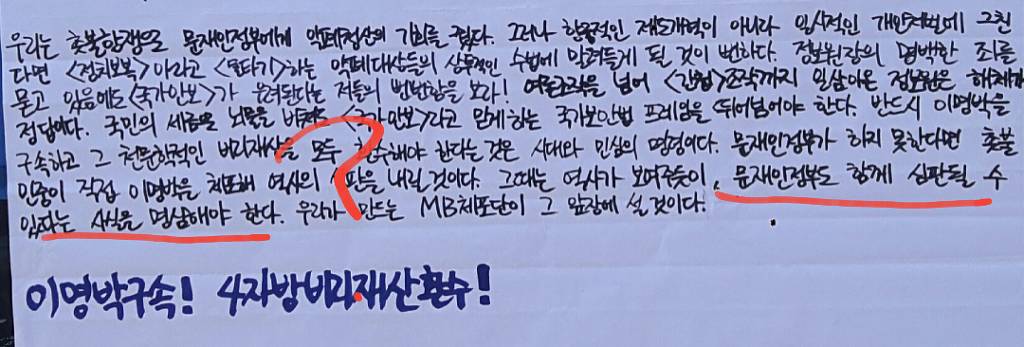 우리는 촛불항쟁으로 문재인정부에게 적폐청산의 기회를 줬다. 그러나 항구적인 제도개혁이 아니라 일시적인 개인처벌에 그친
다면 <정치보복>이라고 <물타기>하는 적폐대상들의 상투적인 수법에 말려들게 될 것이 뻔하다. 정보원장의 명백한 죄를
묻고 있음에도 <국가안보>가 우려된다는 저들의 뻔뻔함을 보라! 여론조작을 넘어 <간첩>조작까지 일삼아온 정보원은 해체가
정답이다. 국민의 세금을 뇌물로 <국가안보>라고 믿게하는 국가보안법 프레임을 뛰어넘어야 한다. 반드시 이명박을
구속하고 그 천문학적인 비리재산을 모두 환수해야 한다는 것은 시대와 민심의 명령이다. 문재인정부가 하지 못한다면 촛불
민중이 직접 이명박을 체포해 역사의 심판을 내릴 것이다. 그때는 역사가 보여주듯이, 문재인정부도 함께 심판될 수
있다는 사실을 명심해야 한다. 우리가 만드는 MB체포단이 그 앞장에 설 것이다.
이명박구속! 4자방비리재산환수!